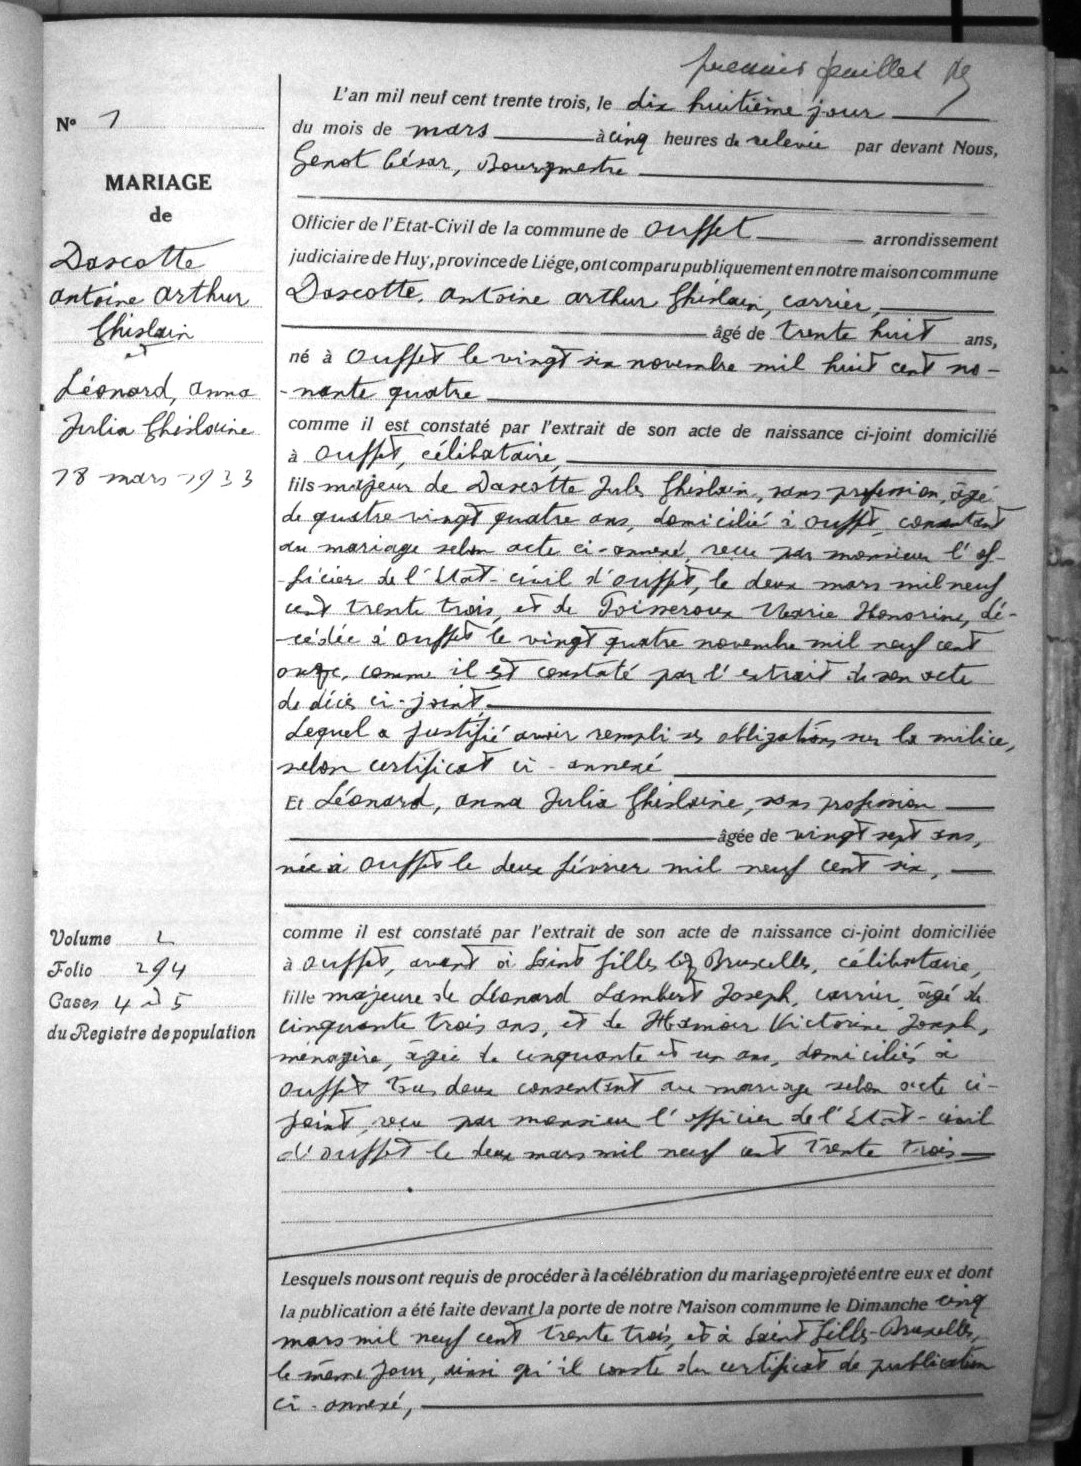 premier feuillet
N° 1
MARIAGE
de
Dascotte
Antoine Arthur
Ghislain
et
Léonard, Anna
Julia Ghislaine
18 mars 1933
Volume 2
Folio 294
Cases 4 à 5
du Registre de population
L'an mil neuf cent trente trois, le dix huitième jour
du mois de mars à cinq heures de relevée par devant Nous,
Genot César, Bourgmestre
Officier de l'Etat-Civil de la commune de Ouffet arrondissement
judiciaire de Huy, province de Liége, ont comparu publiquement en notre maison commune
Dascotte, Antoine Arthur Ghislain, carrier,
âgé de trente huit ans,
né à Ouffet le vingt six novembre mil huit cent no-
-nante quatre
comme il est constaté par l'extrait de son acte de naissance ci-joint domicilié
à Ouffet, célibataire,
fils majeur de Dascotte Jules Ghislain, sans profession, âgé
de quatre vingt quatre ans, domicilié à Ouffet, consentant
au mariage selon acte ci-annexé, reçu par monsieur l'of-
-ficier de l'Etat-civil d'Ouffet, le deux mars mil neuf
cent trente trois, et de Toisseroux Marie Honorine, dé-
-cédée à Ouffet le vingt quatre novembre mil neuf cent
onze, comme il est constaté par l'extrait de son acte
de décès ci-joint.
Lequel a justifié avoir rempli ses obligations sur la milice,
selon certificat ci-annexé
Et Léonard, Anna Julia Ghislaine, sans profession
âgée de vingt sept ans,
née à Ouffet le deux février mil neuf cent six,
comme il est constaté par l'extrait de son acte de naissance ci-joint domiciliée
à Ouffet, avant à Saint Gilles lez Bruxelles, célibataire,
fille majeure de Léonard Lambert Joseph, carrier, âgé de
cinquante trois ans, et de Hamoir Victorine Joseph,
ménagère, âgée de cinquante et un ans, domiciliés à
Ouffet tous deux consentant au mariage selon acte ci-
joint, reçu par monsieur l'officier de l'Etat-civil
d'Ouffet le deux mars mil neuf cent trente trois
Lesquels nous ont requis de procéder à la célébration du mariage projeté entre eux et dont
la publication a été faite devant la porte de notre Maison commune le Dimanche cinq
mars mil neuf cent trente trois, et à Saint Gilles-Bruxelles,
le même jour, ainsi qu'il conste du certificat de publication
ci-annexé,